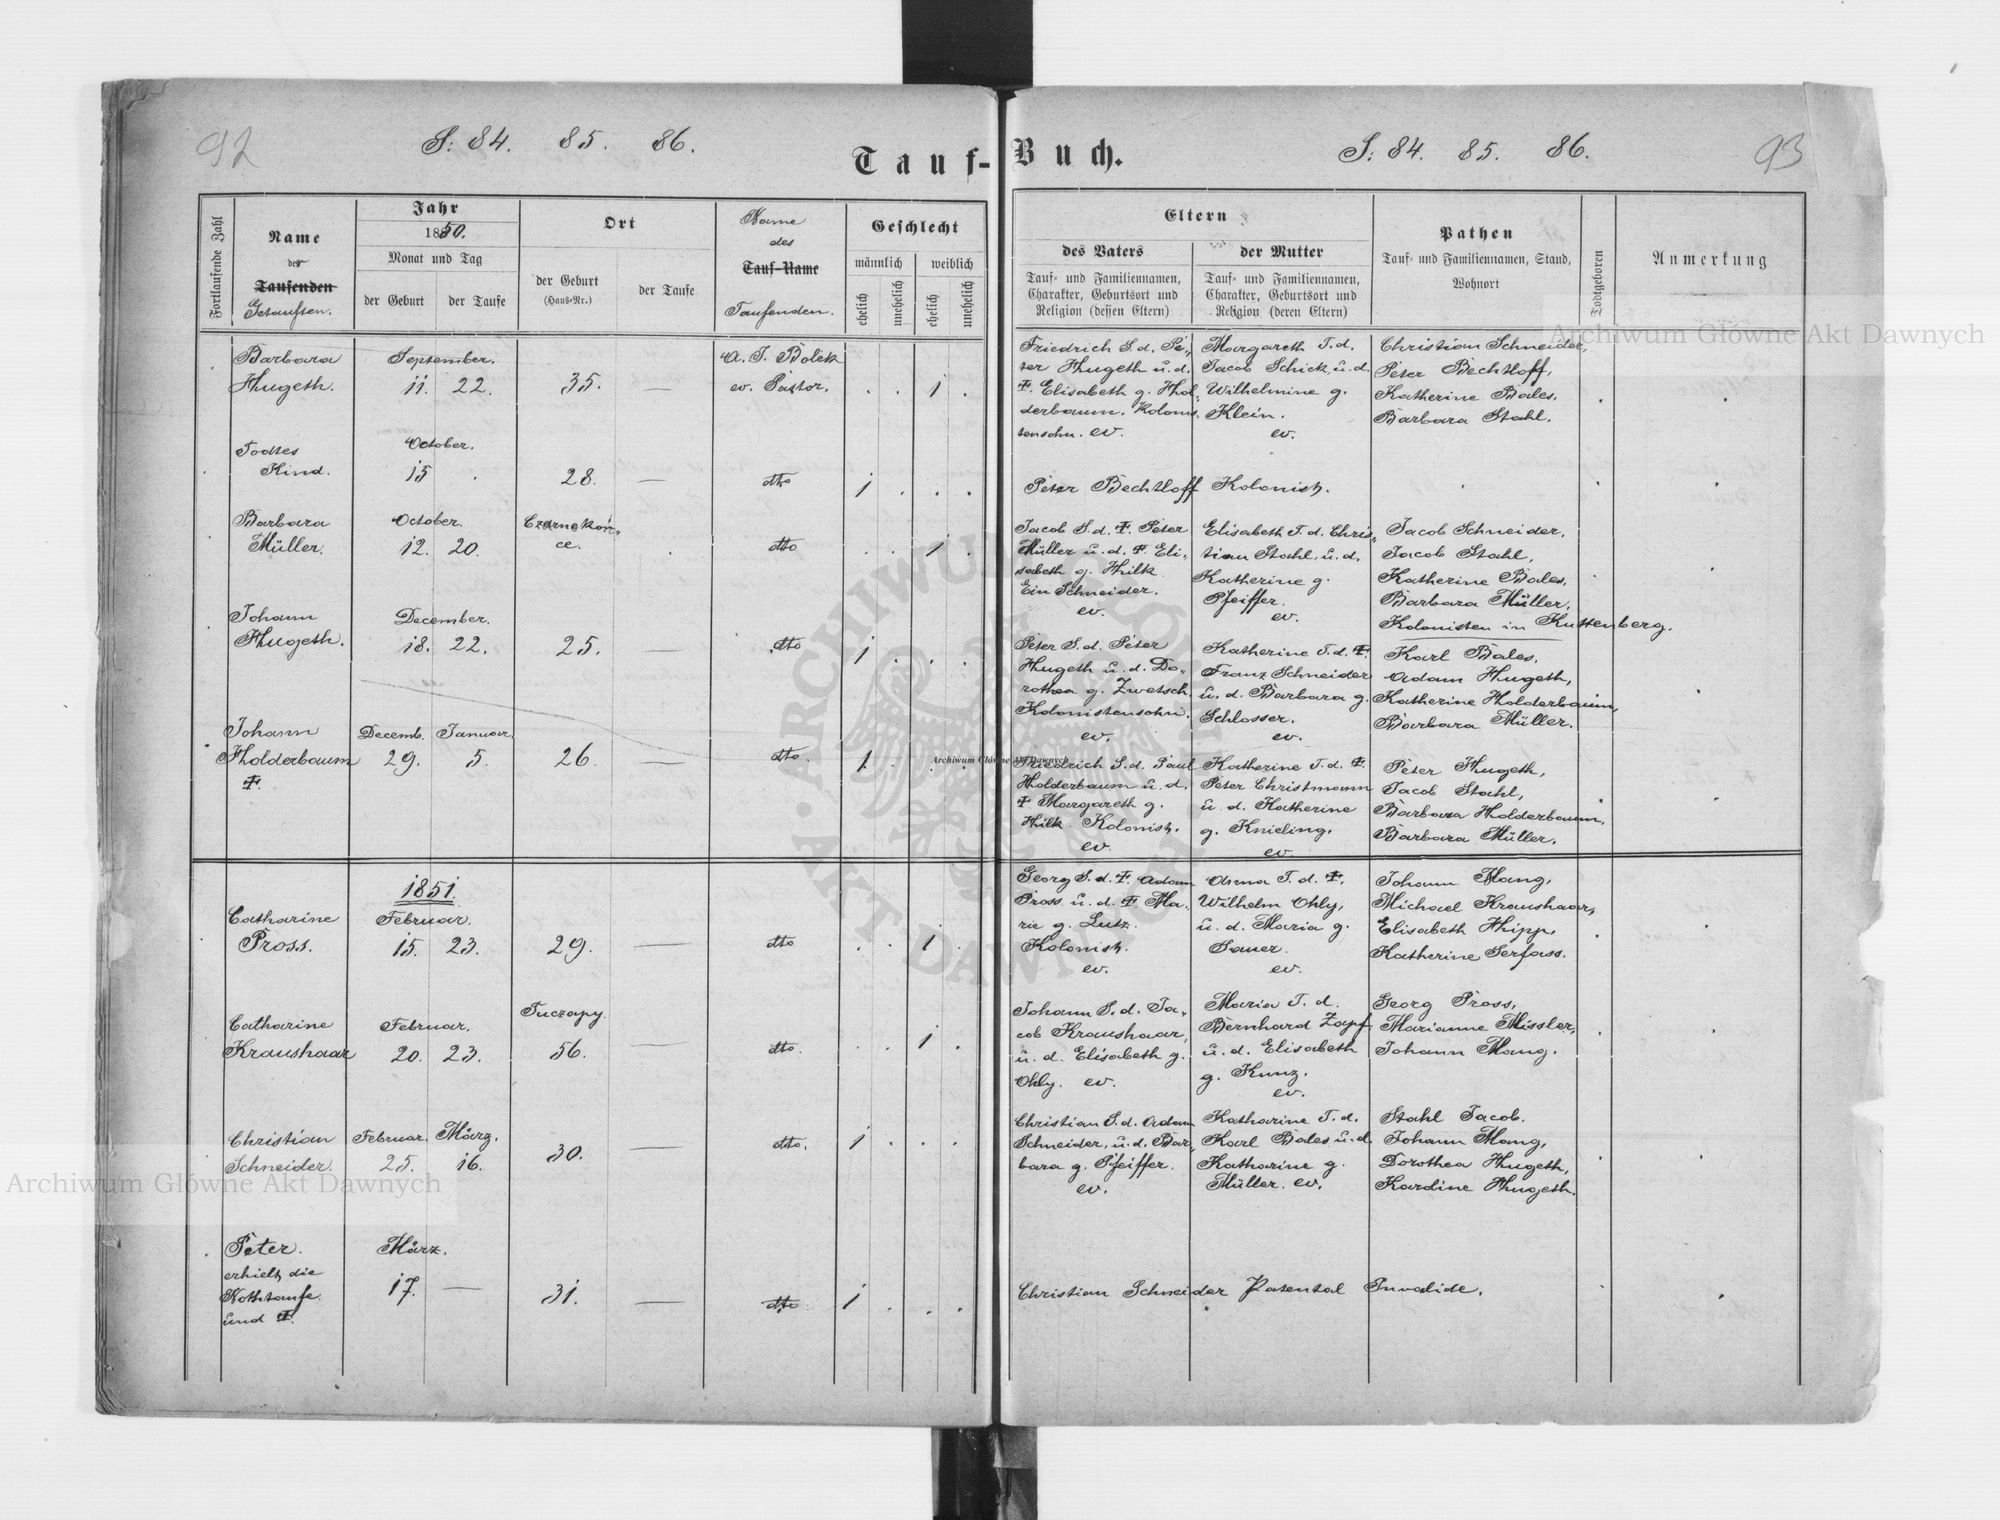 92
S: 84. 85. 86.
Tauf-Buch.
S: 84. 85. 86.
93
Fortlaufende Zahl
Name
der
Taufenden
Getauften.
Jahr
1850.
Monat und Tag
der Geburt
der Taufe
Ort
der Geburt
(Haus-Nr.)
der Taufe
Name
des
Tauf-Name
Taufenden.
Geschlecht
männlich
weiblich
ehelich
unehelich
ehelich
unehelich
Eltern
des Vaters
Tauf- und Familiennamen,
Charakter, Geburtsort und
Religion (dessen Eltern)
der Mutter
Tauf- und Familiennamen,
Charakter, Geburtsort und
Religion (deren Eltern)
Pathen
Tauf- und Familiennamen, Stand,
Wohnort
Todtgeboren
Anmerkung
Barbara
Hugeth.
September.
11. 22.
35. —
A. J. Bolek
ev. Pastor.
1
Friedrich S. d. Pe-
ter Hugeth u. d.
‡. Elisabeth g. Hol-
derbaum. Kolonis-
tensohn. ev.
Margareth T. d.
Jacob Schick, u. d.
Wilhelmine g.
Klein.
ev.
Christian Schneider,
Peter Bechtloff,
Katherine Bales,
Barbara Stahl.
Todtes
Kind.
October.
15
28. —
dto
1
Peter Bechtloff Kolonist.
Barbara
Müller.
October.
12. 20.
Czernokoń-
ce.
dto
1
Jacob S. d. ‡. Peter
Müller u. d. ‡. Eli-
sabeth g. Hilk
Ein Schneider.
ev.
Elisabeth T. d. Chris-
tian Stahl, u. d.
Katherine g.
Pfeiffer.
ev.
Jacob Schneider,
Jacob Stahl,
Katherine Bales,
Barbara Müller,
Kolonisten in Kuttenberg.
Johann
Hugeth.
December.
18. 22.
25. —
dto
1
Peter S. d. Peter
Hugeth u. d. Do-
rothea g. Zwetsch.
Kolonistensohn.
ev.
Katherine T. d. ‡.
Franz Schneider
u. d. Barbara g.
Schlosser.
ev.
Karl Bales,
Adam Hugeth,
Katherine Holderbaum,
Barbara Müller.
Johann
Holderbaum
‡.
Decemb. Januar.
29. 5.
26. —
dto.
1
Friedrich S. d. Paul
Holderbaum u. d.
‡ Margareth g.
Hilk. Kolonist.
ev.
Katherine T. d. ‡.
Peter Christmann
u. d. Katherine
g. Knieling.
ev.
Peter Hugeth,
Jacob Stahl,
Barbara Holderbaum,
Barbara Müller.
1851.
Catharine
Pross.
Februar.
15. 23.
29. —
dto
1
Georg S. d. ‡. Adam
Pross u. d. ‡ Ma-
rie g. Lutz.
Kolonist.
ev.
Anna T. d. ‡.
Wilhelm Ohly,
u. d. Maria g.
Sauer.
ev.
Johann Mang,
Michael Kraushaar,
Elisabeth Hipp,
Katherine Serfass.
Catharine
Kraushaar
Februar.
20. 23.
Tuczapy.
56. —
dto.
1
Johann S. d. Ja-
cob Kraushaar,
u. d. Elisabeth g.
Ohly. ev.
Maria T. d.
Bernhard Zapf
u. d. Elisabeth
g. Kunz.
ev.
Georg Pross,
Marianne Missler,
Johann Mang.
Christian
Schneider.
Februar. März.
25. 16.
30. —
dto.
1
Christian S. d. Adam
Schneider, u. d. Bar-
bara g. Pfeiffer.
ev.
Katharine T. d.
Karl Bales u. d.
Katharine g.
Müller. ev.
Stahl Jacob.
Johann Mang,
Dorothea Hugeth,
Kardine Hugeth.
Peter.
erhielt die
Nothtaufe.
und ‡.
März.
17. —
31. —
dto
1
Christian Schneider Patental Invalide.
Archiwum Główne Akt Dawnych
Archiwum Główne Akt Dawnych
Archiwum Główne Akt Dawnych